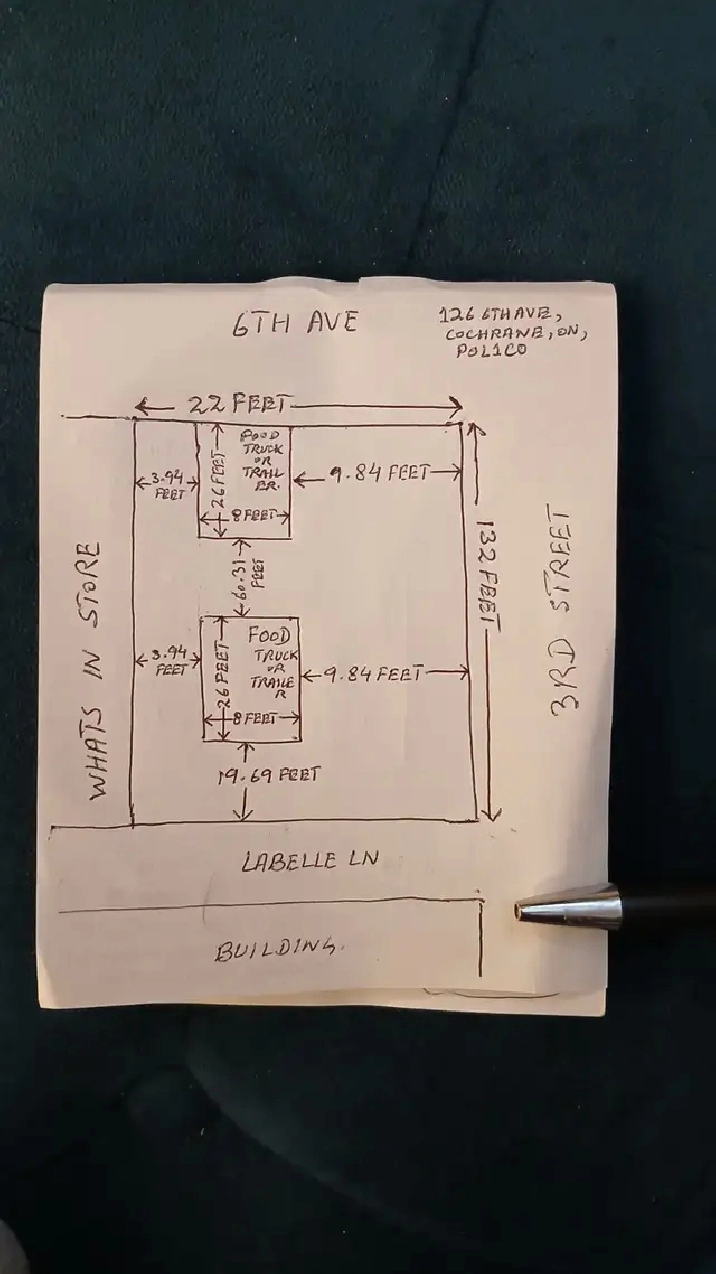 6TH AVE
126 6TH AVE,
COCHRANE, ON,
P0L1C0
22 FEET
FOOD
TRUCK
OR
TRAIL
ER.
26 FEET
8 FEET
3.94
FEET
9.84 FEET
132 FEET
60.31
FEET
WHATS IN STORE
3RD STREET
FOOD
TRUCK
OR
TRAILE
R
26 FEET
8 FEET
3.94
FEET
9.84 FEET
19.69 FEET
LABELLE LN
BUILDING.